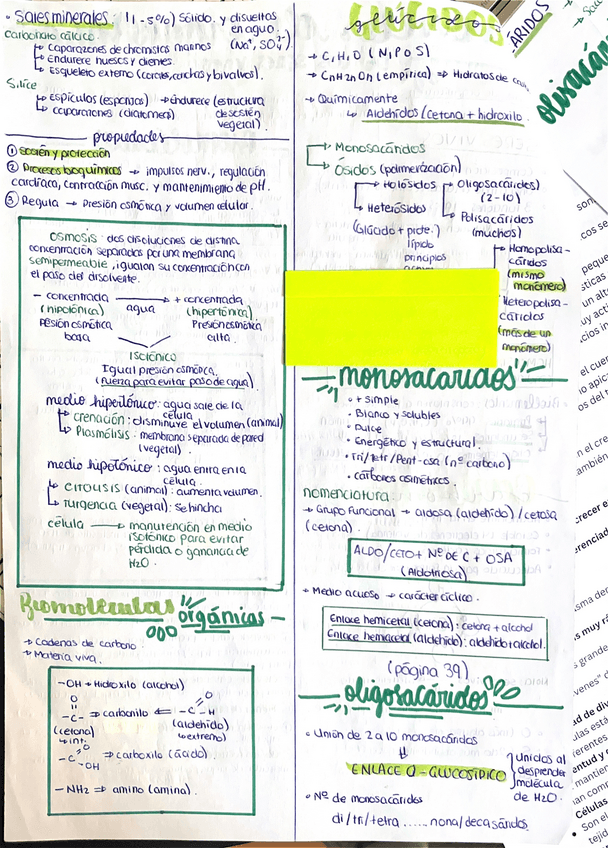 • Sales minerales: (1-5%) Sólido y disueltas
en agua.
Carbonato cálcico: (Na⁺, SO₄²⁻)
↳ Caparazones de animales marinos
↳ Endurece huesos y dientes.
↳ Esqueleto externo (corales, conchas y bivalvos).
Sílice
↳ Espículas (esponjas) → Endurece (estructura
↳ caparazones (diatomea) de sostén
vegetal).
propiedades
① Sostén y protección
② Procesos bioquímicos → impulsos nerv., regulación
cardíaca, contracción musc. y mantenimiento de pH.
③ Regula → Presión osmótica y volumen celular.
OSMOSIS: dos disoluciones de distina
concentración separadas por una membrana
semipermeable, igualan su concentración con
el paso del disolvente.
- concentrada → + concentrada
(hipotónica) agua (hipertónica).
Presión osmótica Presión osmótica
baja alta.
ISOTÓNICO
Igual presión osmótica.
(fuerza para evitar paso de agua).
medio hipertónico: agua sale de la
célula
↳ crenación: disminuye el volumen (animal)
↳ Plasmólisis: membrana separada de pared
(vegetal).
medio hipotónico: agua entra en la
célula.
↳ CITOLISIS (animal): aumenta volumen.
↳ Turgencia (vegetal): se hincha
célula → manutención en medio
isotónico para evitar
pérdida o ganancia de
H₂O.
Biomoleculas
orgánicas
→ Cadenas de carbono.
→ Materia viva.
-OH → Hidroxilo (alcohol)
O
-C- ⇒ carbonilo ⇐ -C-H
O
(cetona) (aldehído)
↳ int. ↳ extremo)
O
-C ⇒ carboxilo (ácido).
OH
- NH₂ ⇒ amino (amina).
glúcidos
→ C, H, O (N, P o S)
→ CnH2nOn (empírica) ⇒ Hidratos de
→ Químicamente
↳ Aldehídos (cetona + hidroxilo.
→ Monosacáridos
→ Ósidos (polimerización)
→ Holósidos → Oligosacáridos)
(2-10)
→ Heterósidos → Polisacáridos
(Glúcido + prote. (muchos)
lípido
principios
→ Homopolisa-
cáridos
(mismo
monómero)
Heteropolisa-
cáridos
(más de un
monómero)
monosacáridos
• + simple
• Blanco y solubles
• Dulce
• Energético y estructural.
• Tri/tetr/Pent-osa (nº carbono)
• carbonos asimétricos.
nomenclatura.
→ Grupo funcional → aldosa (aldehído) / cetosa
(cetona).
ALDO/CETO + Nº DE C + OSA
(Aldotriosa)
→ Medio acuoso → carácter cíclico.
Enlace hemicetal (cetona): cetona + alcohol
Enlace hemiacetal (aldehído): aldehído + alcohol.
(página 39)
oligosacáridos
• Unión de 2 a 10 monosacáridos
⇓
ENLACE O-GLUCOSÍDICO
Unidos al
desprender
molécula
de H₂O.
• Nº de monosacáridos
di/tri/tetra ...... nona/decasárido.
ÁRIDOS
olisacár